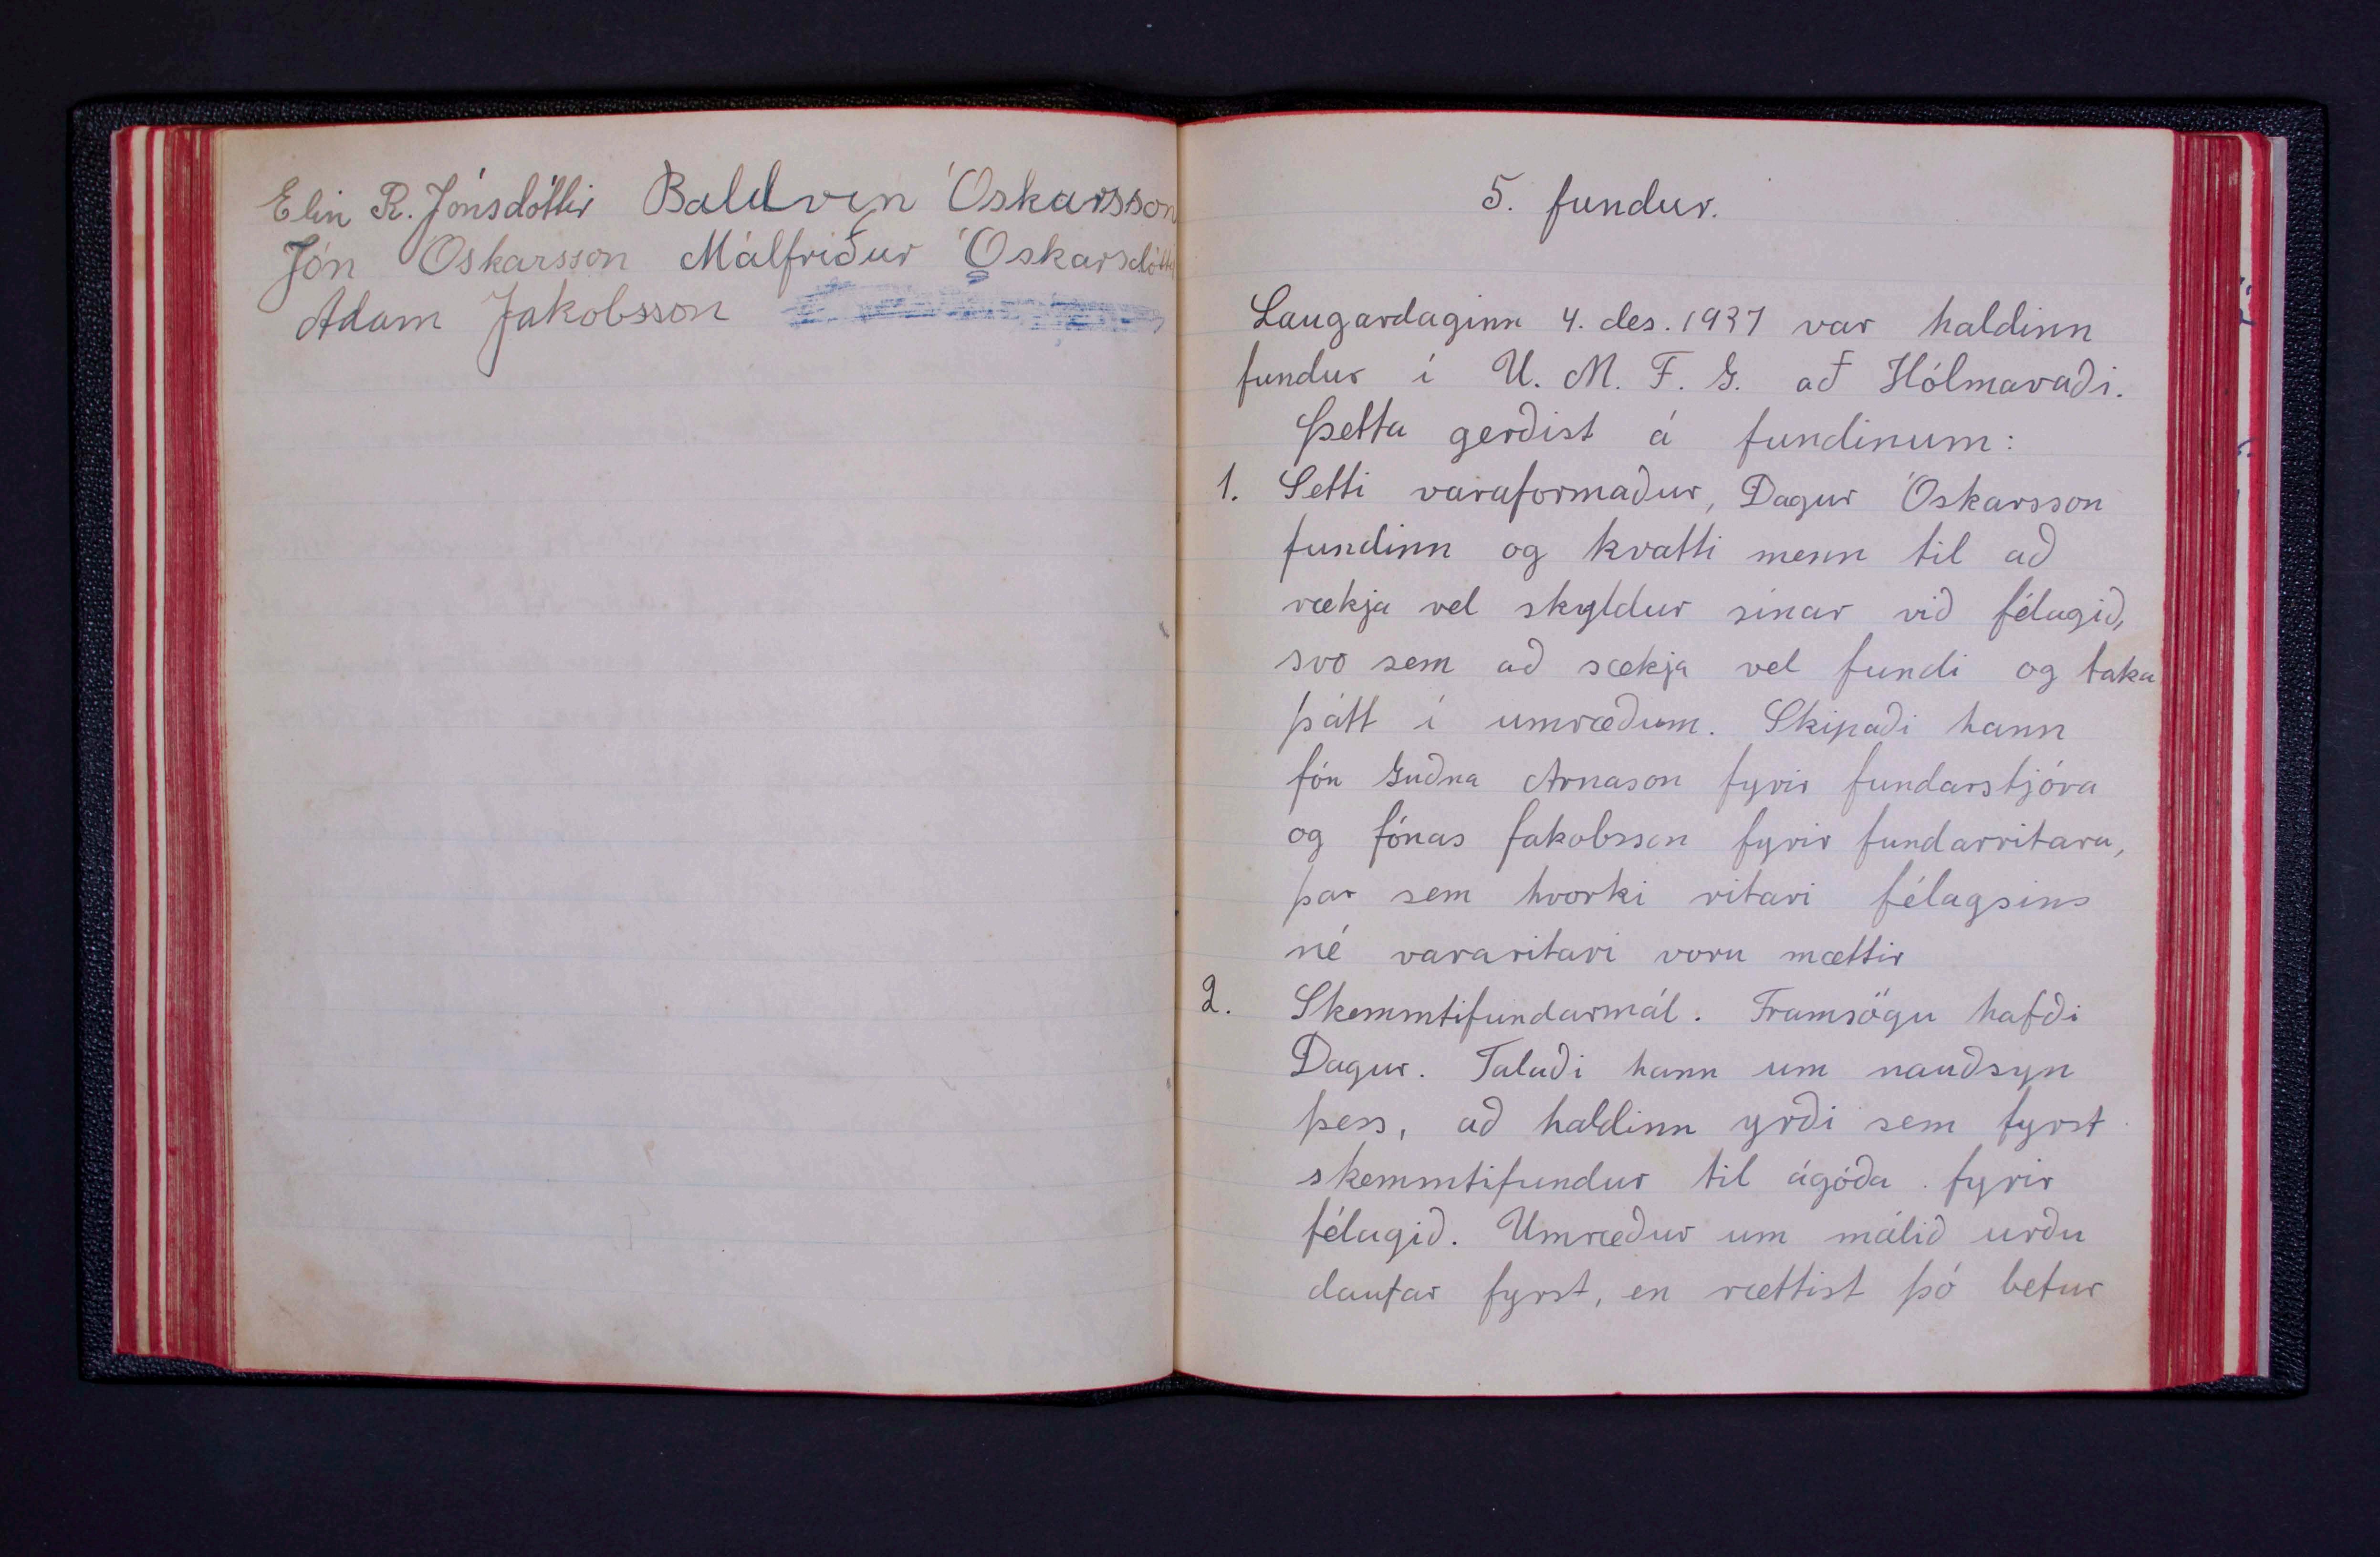 Elín R. Jónsdóttir Baldvin Óskarsson
Jón Óskarsson Málfríður Óskarsdóttir
Adam Jakobsson
5. fundur.
Laugardaginn 4. des. 1937 var haldinn
fundur í U. M. F. G. að Hólmavaði.
Þetta gerðist á fundinum:
1. Setti varaformaður, Dagur Óskarsson
fundinn og kvatti menn til að
rækja vel skyldur sínar við félagið,
svo sem að sækja vel fundi og taka
þátt í umræðum. Skipaði hann
Jón Guðna Árnason fyrir fundarstjóra
og Jónas Jakobsson fyrir fundarritara,
þar sem hvorki ritari félagsins
né vararitari voru mættir
2. Skemmtifundarmál. Framsögu hafði
Dagur. Talaði hann um nauðsyn
þess, að haldinn yrði sem fyrst
skemmtifundur til ágóða fyrir
félagið. Umræður um málið urðu
daufar fyrst, en rættist þó betur